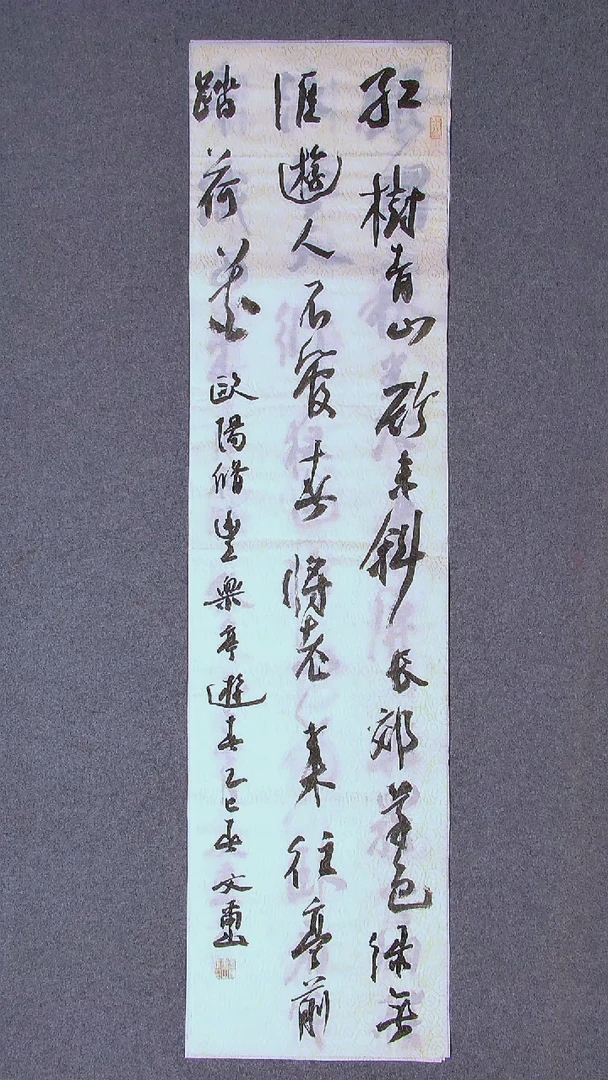 紅樹青山斜長郊草色綠無
涯遊人不管春將老來往亭前
踏荷花歐陽修豐樂亭遊春乙巳春文